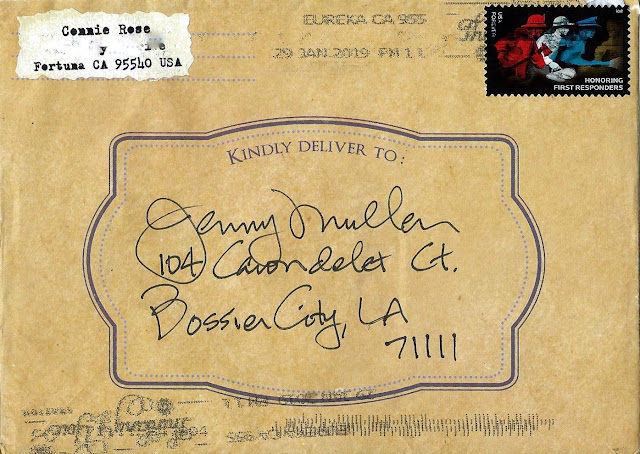 Connie Rose
Fortuna CA 95540 USA
EUREKA CA 955
29 JAN 2019 PM 1 L
USA
FOREVER
HONORING
FIRST RESPONDERS
KINDLY DELIVER TO:
Jenny Mullen
104 Carondelet Ct.
Bossier City, LA
71111